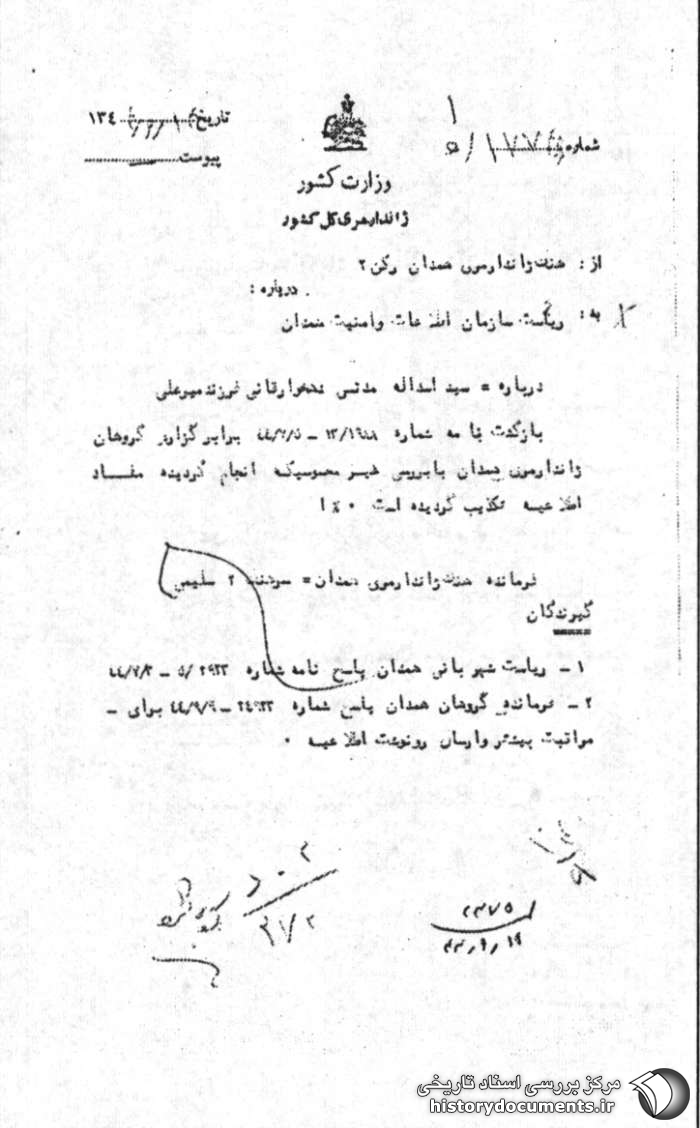 شماره ۵/۱۷۷
تاریخ ۱۳۴
پیوست
وزارت کشور
ژاندارمری کل کشور
از : هنگ ژاندارمری همدان رکن ۲
درباره :
به : ریاست سازمان اطلاعات وامنیت همدان
درباره = سید اسداله مدنی دهخوارقانی فرزند میرعلی
بازگشت بنامه شماره ۱۳/۱۹۸۸ – ۴۴/۷/۵ برابر گزارش گروهان
ژاندارمری همدان با بررسی غیر محسوسیکه انجام گردیده مفاد
اطلاعیه تکذیب گردیده است ۰
فرمانده هنگ ژاندارمری همدان = سرهنگ ۲ سلیمی
گیرندگان
۱ – ریاست شهربانی همدان پاسخ نامه شماره ۵/۲۹۲۳ – ۴۴/۷/۳
۲ – فرمانده گروهان همدان پاسخ شماره ۲۴۹۳۳ – ۴۴/۹/۹ برای –
مراقبت بیشتر وارسال رونوشت اطلاعیه ۰
۴۴٫۹٫۱۹
مرکز بررسی اسناد تاریخی
historydocuments.ir